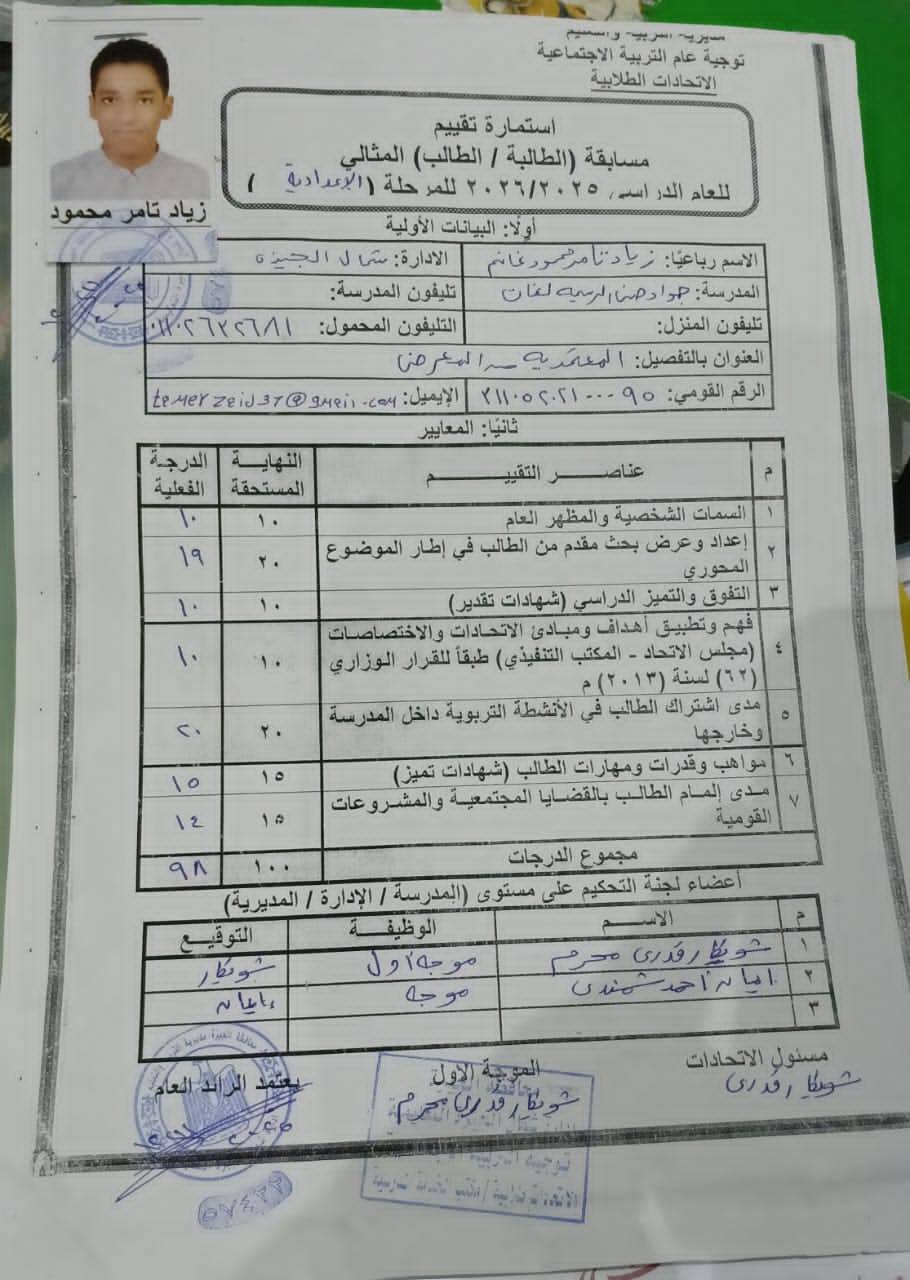 مديرية التربية والتعليم
توجية عام التربية الاجتماعية
الاتحادات الطلابية
استمارة تقييم
مسابقة (الطالبة / الطالب) المثالي
للعام الدراسي ٢٠٢٦/٢٠٢٥ للمرحلة (الإعدادية)
زياد تامر محمود
أولًا: البيانات الأولية
الاسم رباعيًا: زياد تامر محمود غانم الادارة: شمال الجيزة
المدرسة: جواد حسنى الرسمية لغات تليفون المدرسة:
تليفون المنزل: التليفون المحمول: ٠١١٠٢٦٣٢٦٨١
العنوان بالتفصيل: المعتمدية
الرقم القومي: الإيميل:
ثانيًا: المعايير
م عناصر التقييم النهاية المستحقة الدرجة الفعلية
١ السمات الشخصية والمظهر العام ١٠ ١٠
٢ إعداد وعرض بحث مقدم من الطالب في إطار الموضوع المحوري ٢٠ ١٩
٣ التفوق والتميز الدراسي (شهادات تقدير) ١٠ ١٠
٤ فهم وتطبيق أهداف ومبادئ الاتحادات والاختصاصات
(مجلس الاتحاد - المكتب التنفيذي) طبقاً للقرار الوزاري
(٦٢) لسنة (٢٠١٣) م ١٠ ١٠
٥ مدى اشتراك الطالب في الأنشطة التربوية داخل المدرسة
وخارجها ٢٠ ٢٠
٦ مواهب وقدرات ومهارات الطالب (شهادات تميز) ١٥ ١٥
٧ مدى إلمام الطالب بالقضايا المجتمعية والمشروعات
القومية ١٥ ١٤
مجموع الدرجات ١٠٠ ٩٨
أعضاء لجنة التحكيم على مستوى (المدرسة / الإدارة / المديرية)
م الاسم الوظيفة التوقيع
١ شويكار قدرى محرم موجه أول شويكار
٢ ايمان أحمد شمندى موجه إيمان
٣
مسئول الاتحادات الموجة الاول يعتمد الرائد العام
شويكار قدرى شويكار قدرى محرم
٥٧٤٢٢